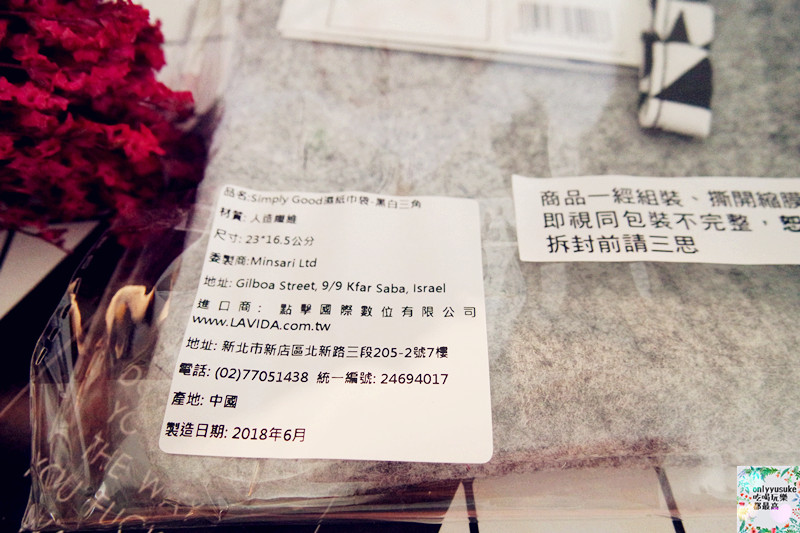 品名:Simply Good濕紙巾袋-黑白三角
材質: 人造纖維
尺寸: 23*16.5公分
委製商:Minsari Ltd
地址: Gilboa Street, 9/9 Kfar Saba, Israel
進口商: 點擊國際數位有限公司
www.LAVIDA.com.tw
地址: 新北市新店區北新路三段205-2號7樓
電話: (02)77051438 統一編號: 24694017
產地: 中國
製造日期: 2018年6月
商品一經組裝、撕開縮膜
即視同包裝不完整，恕
拆封前請三思
onlyyusuke
吃喝玩樂
部最高